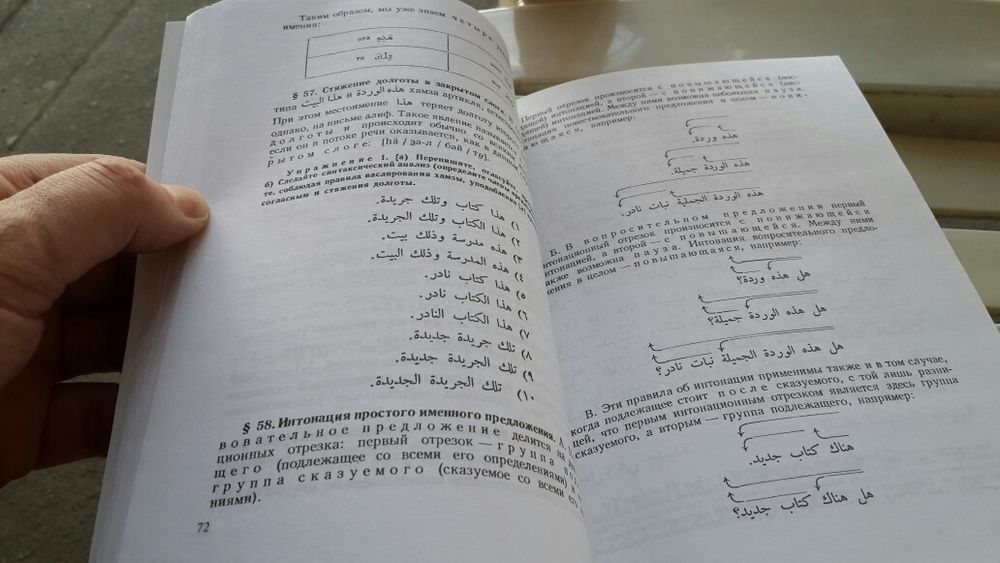 Таким образом, мы уже знаем четыре
имения:
эта هٰذِهِ
та تِلْكَ
§ 57. Стяжение долготы в закрытом слоге.
типа هذا البيت и هذه الوردة хамза артикля,
При этом местоимение هذا теряет долготу
однако, на письме алиф. Такое явление
долготы и происходит обычно со
если он в потоке речи оказывается, как в
рытом слоге: [hā / за-л / бай / ту].
Упражнение 1. [а) Перепишите,
б) Сделайте синтаксический анализ (определите члены
те, соблюдая правила васлирования хамзы, уподобления
согласным и стяжения долготы.
١) هذا كتاب وتلك جريدة.
٢) هذا الكتاب وتلك الجريدة.
٣) هذه مدرسة وذلك بيت.
٤) هذه المدرسة وذلك البيت.
٥) هذا كتاب نادر.
٦) هذا الكتاب نادر.
٧) هذا الكتاب النادر.
٨) تلك جريدة جديدة.
٩) تلك الجريدة جديدة.
١٠) تلك الجريدة الجديدة.
§ 58. Интонация простого именного предложения. А.
вовательное предложение делится на
ционных отрезка: первый отрезок — группа
щего (подлежащее со всеми его определениями)
группа сказуемого (сказуемое со всеми его
ниями).
72
Первый отрезок произносится с повышающейся (вос-
ей) интонацией, а второй — с понижающейся (нис-
ающей) интонацией. Между ними возможна небольшая пауза.
тонация повествовательного предложения в целом — пони-
ающаяся, например:
هذه وردة.
هذه الوردة جميلة.
هذه الوردة الجميلة نبات نادر.
Б. В вопросительном предложении первый
интонационный отрезок произносится с понижающейся
интонацией, а второй — с повышающейся. Между ними
также возможна пауза. Интонация вопросительного предло-
жения в целом — повышающаяся, например:
هل هذه وردة؟
هل هذه الوردة جميلة؟
هل هذه الوردة الجميلة نبات نادر؟
В. Эти правила об интонации применимы также и в том случае,
когда подлежащее стоит после сказуемого, с той лишь разни-
цей, что первым интонационным отрезком является здесь группа
сказуемого, а вторым — группа подлежащего, например:
هناك كتاب جديد.
هل هناك كتاب جديد؟